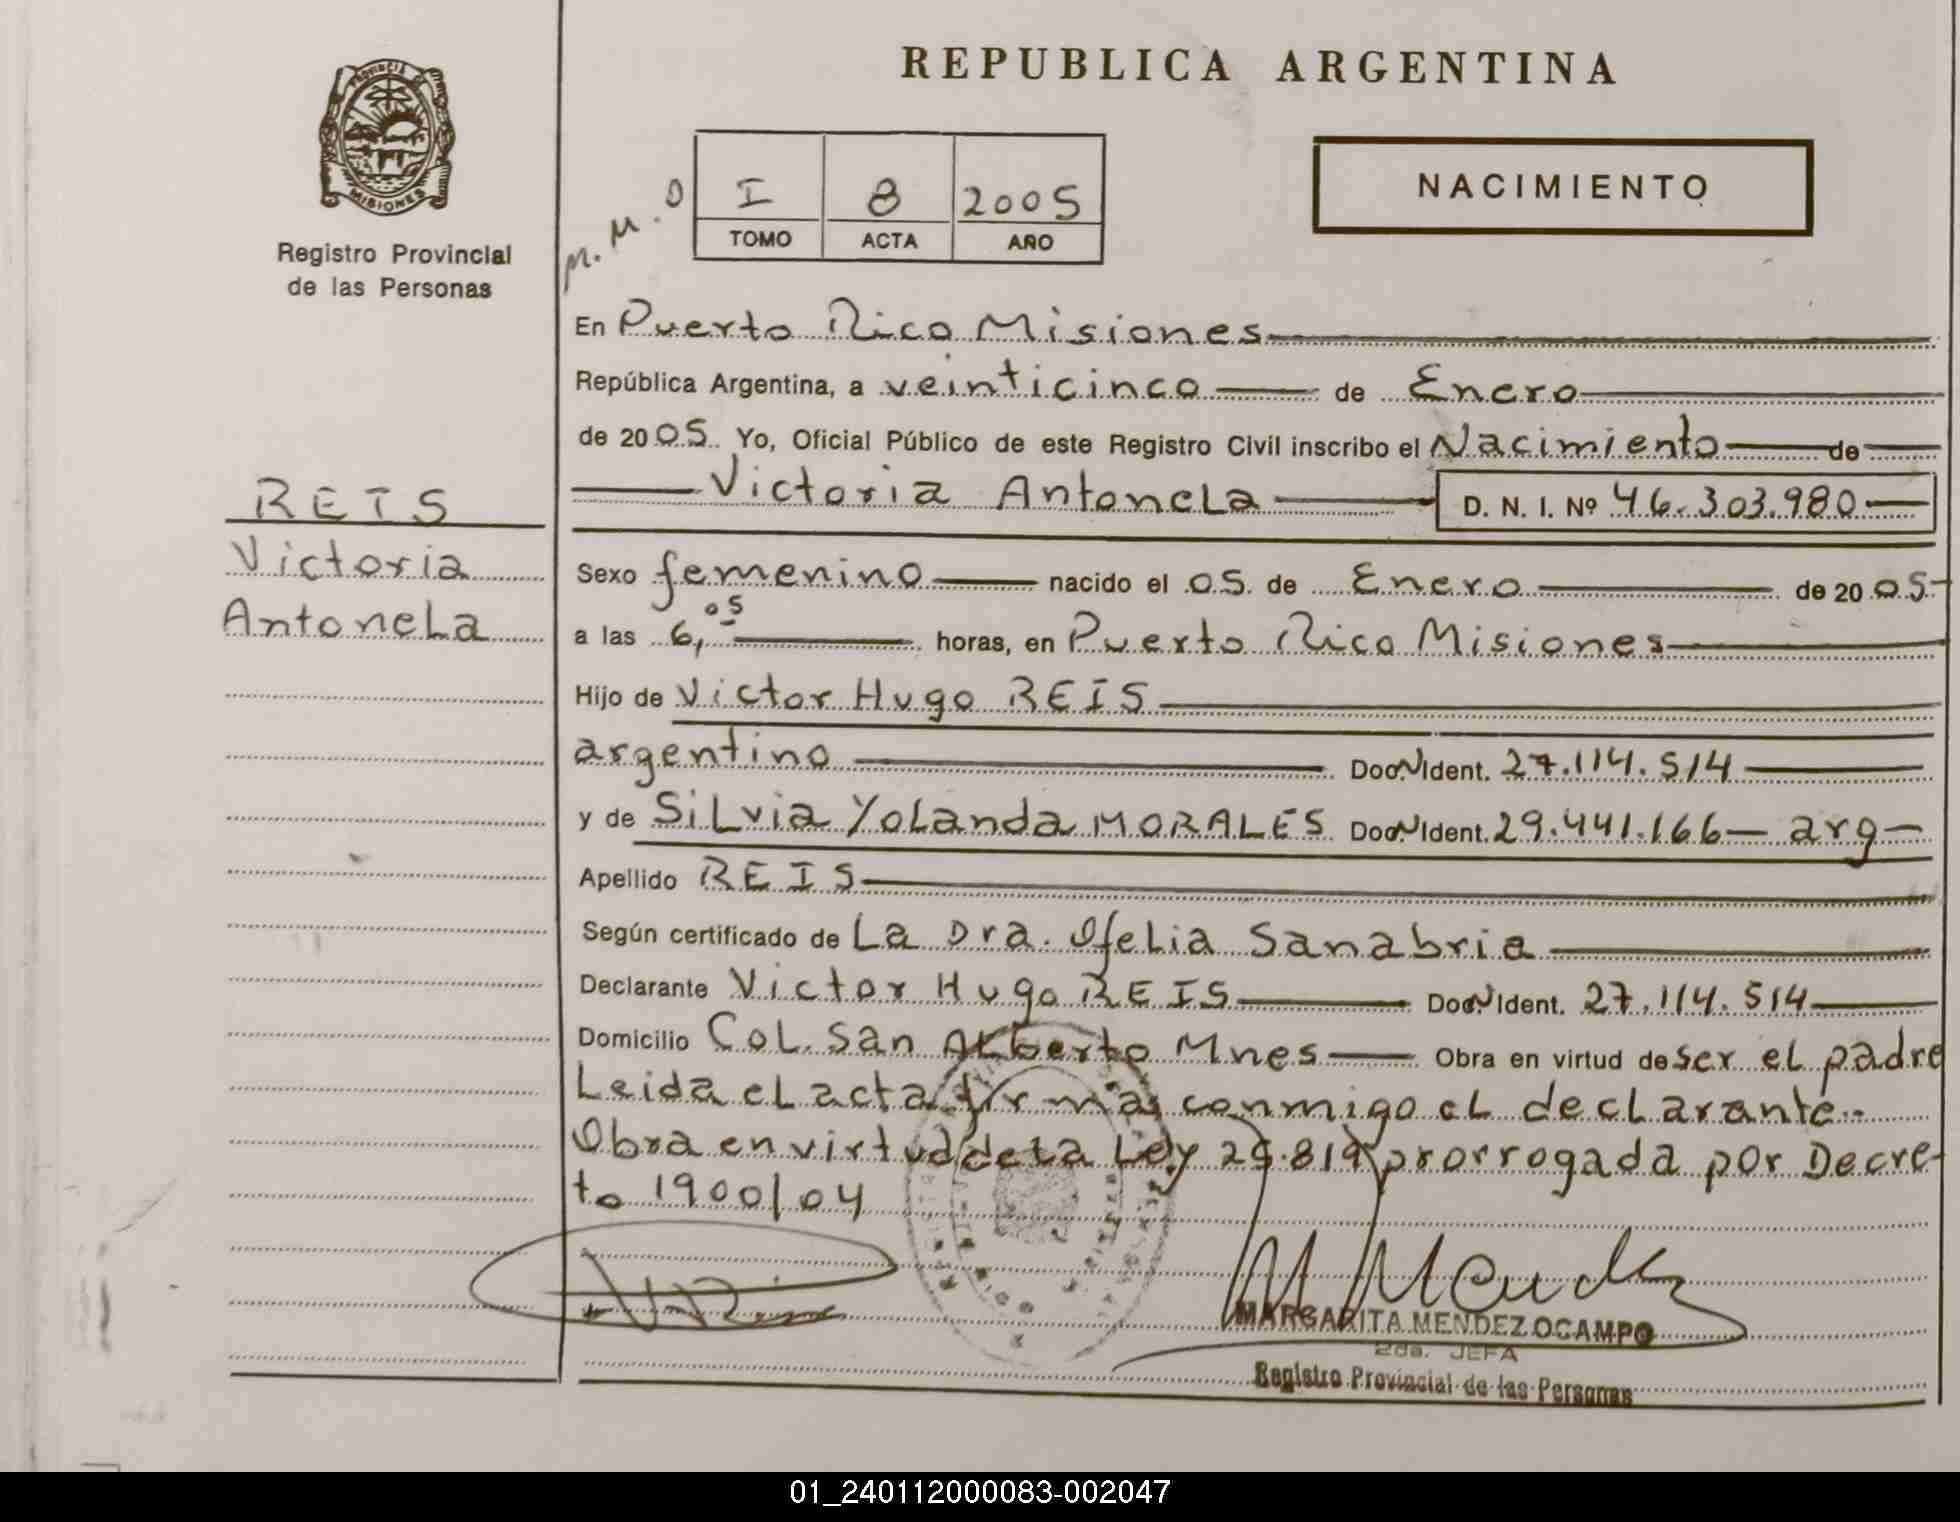 REPUBLICA ARGENTINA
PROVINCIA DE
MISIONES
Registro Provincial
de las Personas
M.M.O
I 8 2005
TOMO ACTA AÑO
NACIMIENTO
En Puerto Rico Misiones
República Argentina, a veinticinco de Enero
de 2005 Yo, Oficial Público de este Registro Civil inscribo el Nacimiento de
Victoria Antonela D. N. I. Nº 46.303.980
REIS
Victoria
Antonela
Sexo femenino nacido el 05 de Enero de 2005
a las 6,05 horas, en Puerto Rico Misiones
Hijo de Victor Hugo REIS
argentino Doc. N Ident. 27.114.514
y de Silvia Yolanda MORALES Doc. N Ident. 29.441.166 arg
Apellido REIS
Según certificado de La Dra. Ofelia Sanabria
Declarante Victor Hugo REIS Doc. N Ident. 27.114.514
Domicilio Col. San Alberto Mnes Obra en virtud de ser el padre
Leida el acta firma conmigo el declarante..
Obra en virtud de la Ley 25.819 prorrogada por Decre-
to 1900/04
MARGARITA MENDEZ OCAMPO
2da. JEFA
Registro Provincial de las Personas
01_240112000083-002047